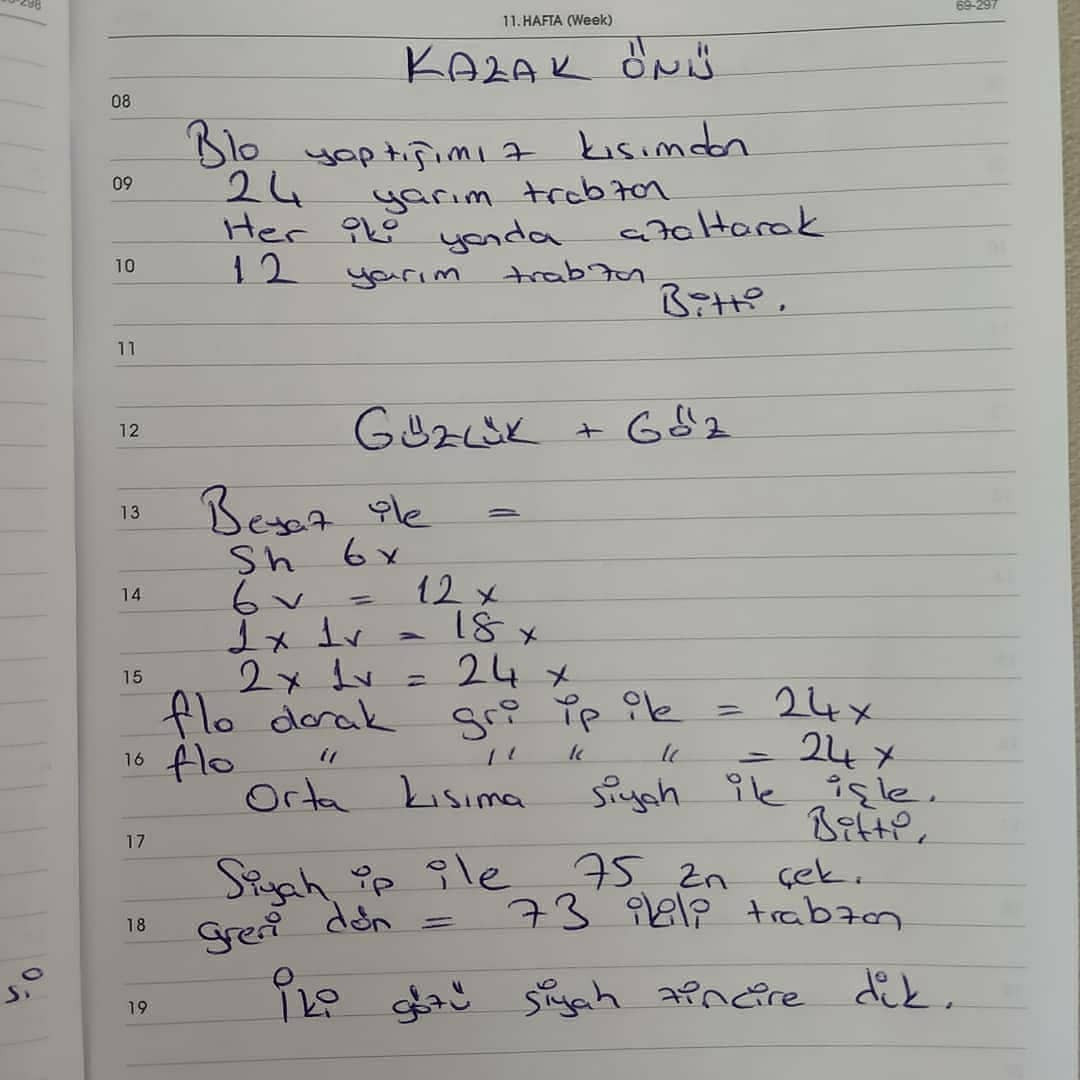 11. HAFTA (Week)
69-297
KAZAK ÖNÜ
08
Blo yaptığımız kısımdan
09
24 yarım trabzon
Her iki yanda azaltarak
10
12 yarım trabzon
Bitti.
11
12
GÖZLÜK + GÖZ
13
Beyaz ile =
Sh 6x
14
6 v = 12 x
1x 1v = 18 x
15
2x 1v = 24 x
flo darak gri ip ile = 24x
16
flo " " " " = 24x
Orta kısıma siyah ile işle.
Bitti.
17
Siyah ip ile 75 zn çek.
18
greri dön = 73 ikili trabzon
19
İki gözü siyah zincire dik.